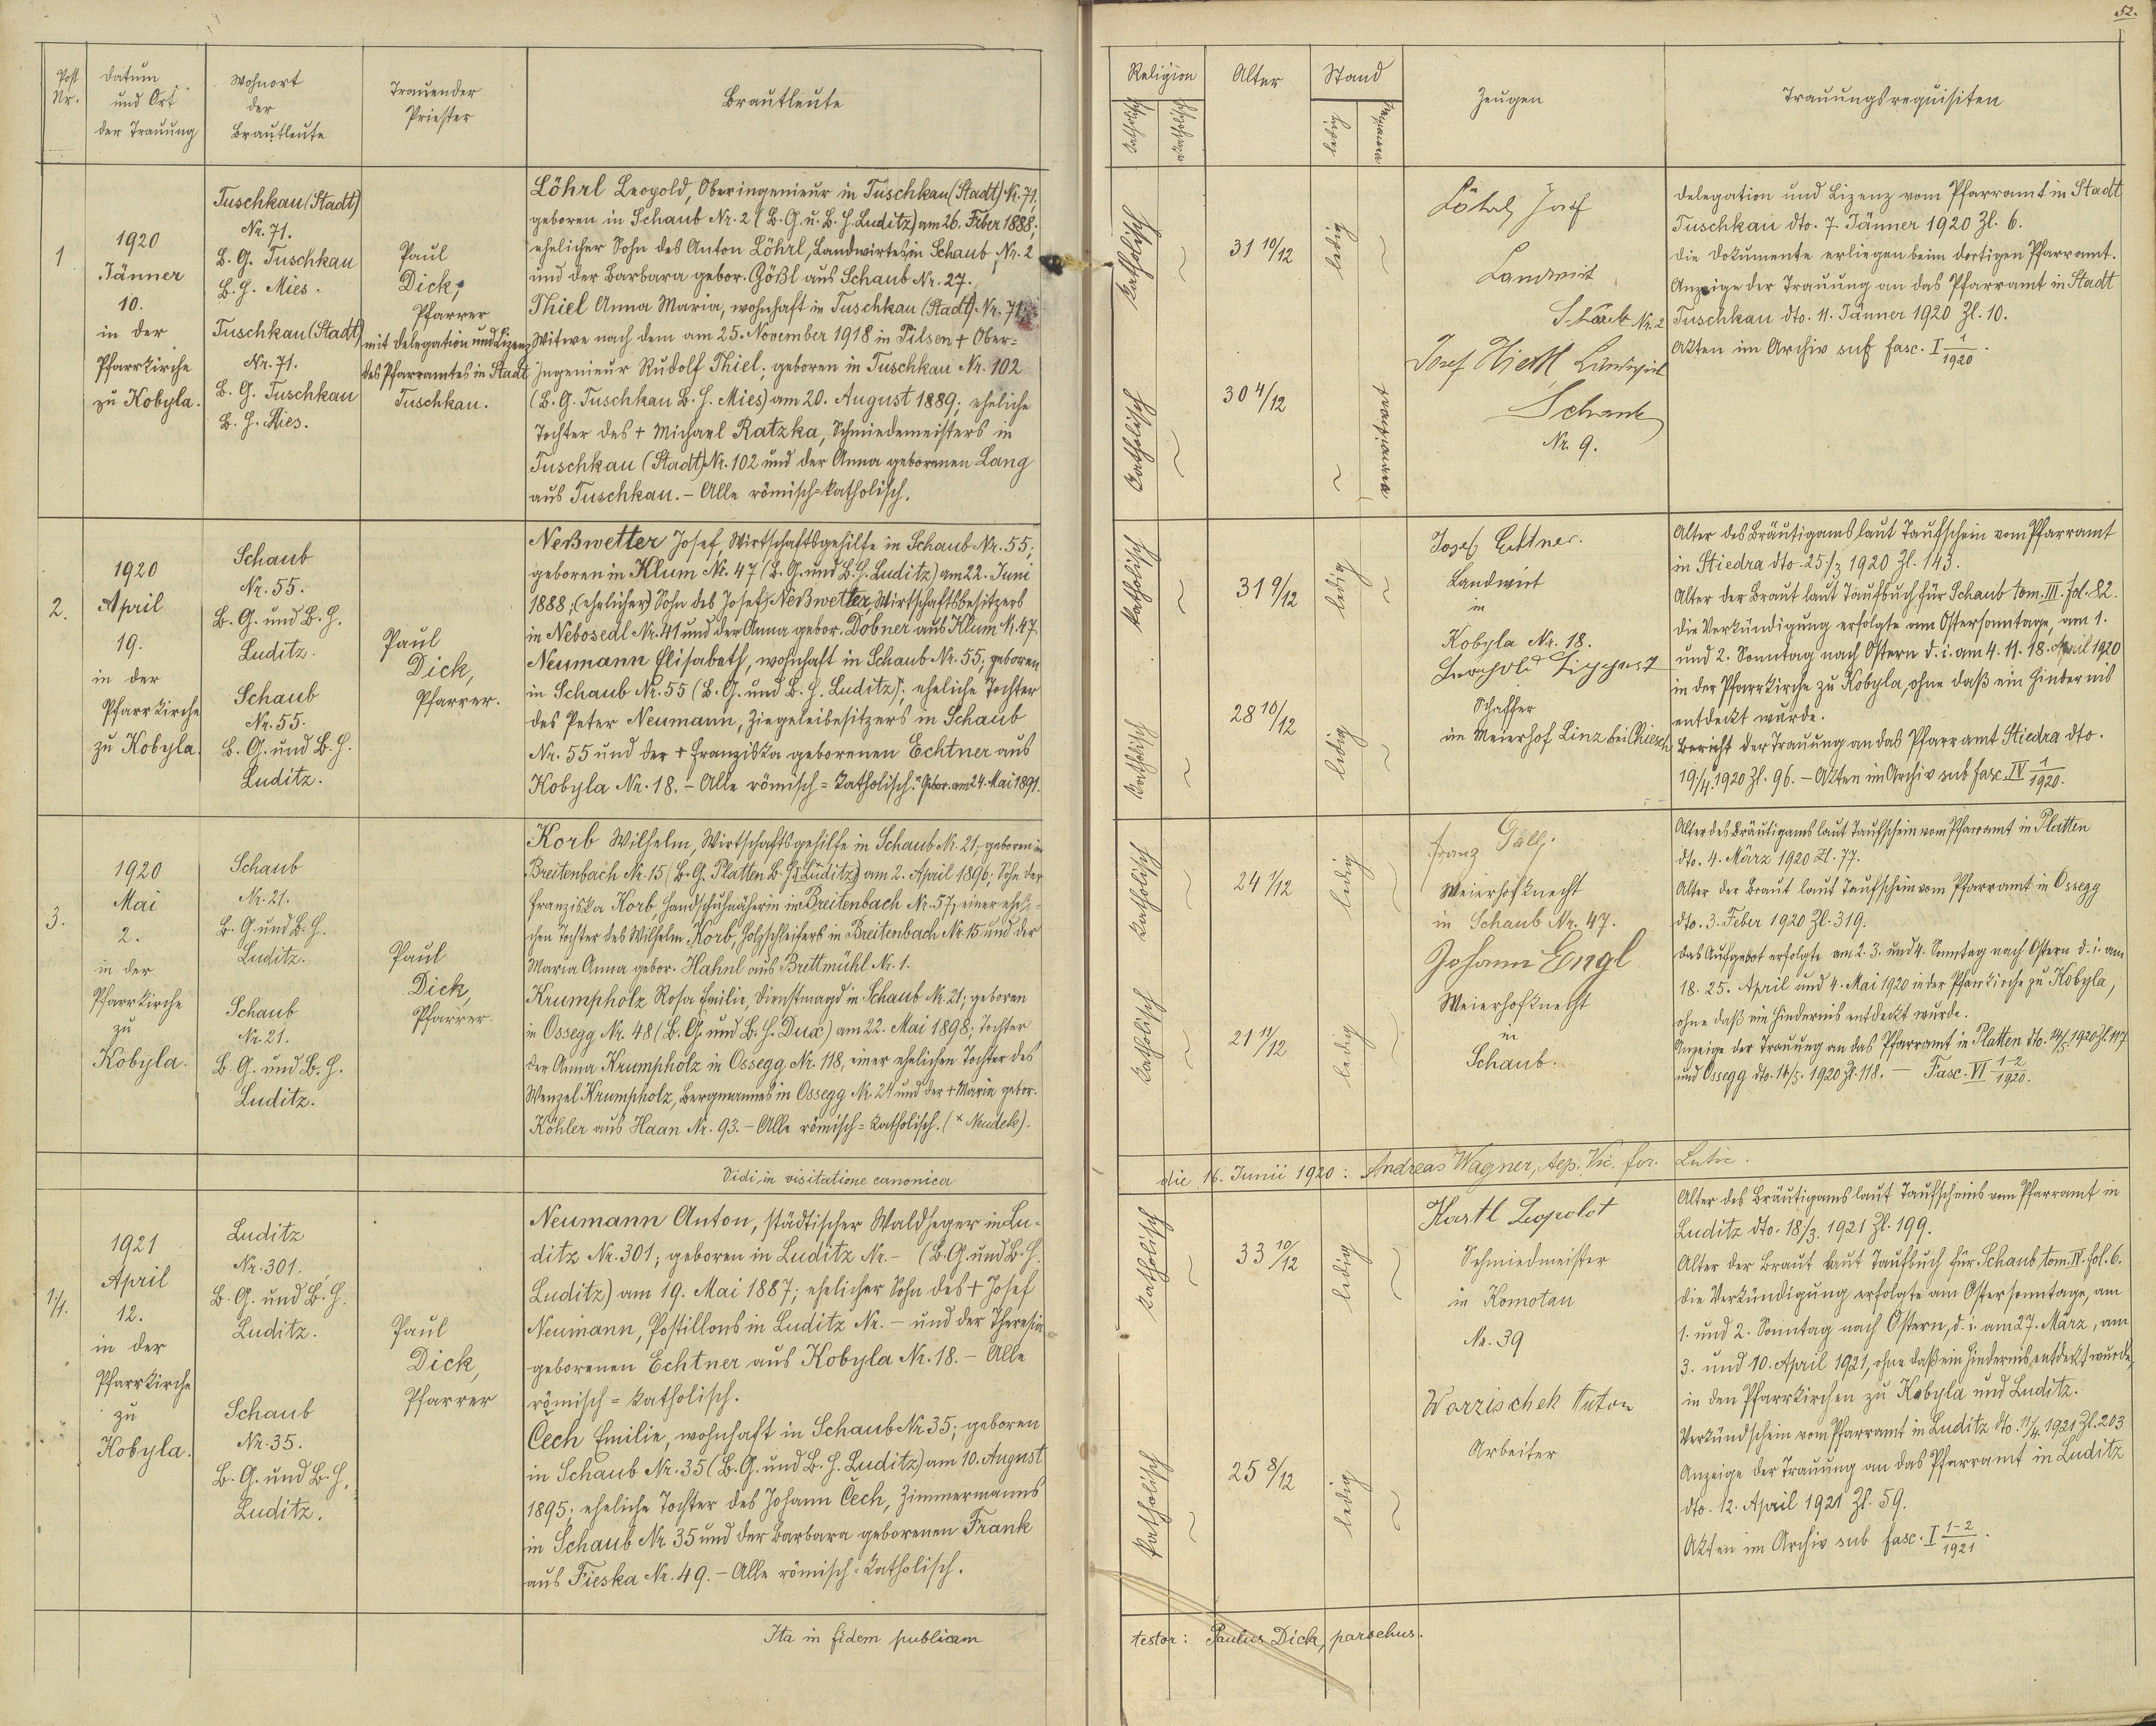 52.
Post Nr.
Datum und Ort der Trauung
Wohnort der Brautleute
Trauender Priester
Brautleute
Religion
katholisch
akatholisch
Alter
Stand
ledig
verwitwet
Zeugen
Trauungsrequisiten
1
1920
Jänner
10.
in der
Pfarrkirche
zu Kobyla.
Tuschkau (Stadt)
Nr. 71.
B. G. Tuschkau
B. H. Mies.
Tuschkau (Stadt)
Nr. 71.
B. G. Tuschkau
B. H. Mies.
Paul
Dick,
Pfarrer
mit Delegation und Lizenz
des Pfarramtes in Stadt
Tuschkau.
Löhrl Leopold, Oberingenieur in Tuschkau (Stadt) N. 71,
geboren in Schaub Nr. 2 (B. G. u. B. H. Luditz) am 26. Feber 1888;
ehelicher Sohn des Anton Löhrl, Landwirtes in Schaub Nr. 2
und der Barbara gebor. Gößl aus Schaub Nr. 27.
Thiel Anna Maria, wohnhaft in Tuschkau (Stadt) Nr. 71
Witwe nach dem am 25. November 1918 in Pilsen + Ober=
Ingenieur Rudolf Thiel; geboren in Tuschkau Nr. 102
(B. G. Tuschkau B. H. Mies) am 20. August 1889; eheliche
Tochter des + Michael Ratzka, Schmiedemeisters in
Tuschkau (Stadt) Nr. 102 und der Anna geborenen Lang
aus Tuschkau. - Alle römisch=katholisch.
katholisch
31 10/12
ledig
katholisch
30 4/12
verwitwet
Löhrl Josef
Landwirt
Schaub Nr. 2
Josef Landwirt
Schaub
Nr. 9.
Delegation und Lizenz vom Pfarramt in Stadt
Tuschkau dto. 7. Jänner 1920 Zl. 6.
Die Dokumente erliegen beim dortigen Pfarramt.
Anzeige der Trauung an das Pfarramt in Stadt
Tuschkau dto. 11. Jänner 1920 Zl. 10.
Akten im Archiv sub fasc. I 1/1920.
2.
1920
April
19.
in der
Pfarrkirche
zu Kobyla.
Schaub
Nr. 55.
B. G. und B. H.
Luditz.
Schaub
Nr. 55.
B. G. und B. H.
Luditz.
Paul
Dick,
Pfarrer.
Neßwetter Josef, Wirtschaftsgehilfe in Schaub Nr. 55;
geboren in Klum Nr. 47 (B. G. und B. H. Luditz) am 22. Juni
1888; (ehelicher) Sohn des Josef Neßwetter, Wirtschaftsbesitzers
in Nebosedl Nr. 41 und der Anna gebor. Dobner aus Klum N. 47
Neumann Elisabeth, wohnhaft in Schaub Nr. 55; geboren
in Schaub Nr. 55 (B. G. und B. H. Luditz)*; eheliche Tochter
des Peter Neumann, Ziegeleibesitzers in Schaub
Nr. 55 und der + Franziska geborenen Echtner aus
Kobyla Nr. 18. - Alle römisch=katholisch. * Gebor. am 24. Mai 1891.
katholisch
31 9/12
ledig
katholisch
28 10/12
ledig
Josef Echtner.
Landwirt
in
Kobyla Nr. 18.
Leopold
Schaffer
im Meierhof Linz bei Chiesch
Alter des Bräutigams laut Taufschein vom Pfarramt
in Stiedra dto. 25/3 1920 Zl. 143.
Alter der Braut laut Taufbuch für Schaub tom. III. fol. 82.
Die Verkündigung erfolgte am Ostersonntage, am 1.
und 2. Sonntag nach Ostern d. i. am 4. 11. 18. April 1920
in der Pfarrkirche zu Kobyla, ohne daß ein Hindernis
entdeckt wurde.
Bericht der Trauung an das Pfarramt Stiedra dto.
19/4. 1920 Zl. 96. - Akten im Archiv sub fasc. IV 1/1920.
3.
1920
Mai
2.
in der
Pfarrkirche
zu
Kobyla.
Schaub
Nr. 21.
B. G. und B. H.
Luditz.
Schaub
Nr. 21.
B. G. und B. H.
Luditz.
Paul
Dick,
Pfarrer.
Korb Wilhelm, Wirtschaftsgehilfe in Schaub N. 21; geboren in
Breitenbach Nr. 15 (B. G. Platten B. H. × Luditz) am 2. April 1896; Sohn der
Franziska Korb, Handschuhnäherin in Breitenbach Nr. 57, einer eheli=
chen Tochter des Wilhelm Korb, Holzschleifers in Breitenbach Nr. 15 und der
Maria Anna gebor. Hahnl aus Brettmühl Nr. 1.
Krumpholz Rosa Emilie, Dienstmagd in Schaub N. 21; geboren
in Ossegg Nr. 48 (B. G. und B. H. Dux) am 22. Mai 1898; Tochter
der Anna Krumpholz in Ossegg Nr. 118, einer ehelichen Tochter des
Wenzel Krumpholz, Bergmannes in Ossegg Nr. 24 und der + Maria gebor.
Köhler aus Haan Nr. 93. - Alle römisch=katholisch. (× Neudek).
katholisch
24 1/12
ledig
katholisch
21 11/12
ledig
Franz
Meierhofknecht
in Schaub Nr. 47.
Johann Engl
Meierhofknecht
in
Schaub.
Alter des Bräutigams laut Taufschein vom Pfarramt in Platten
dto. 4. März 1920 Zl. 77.
Alter der Braut laut Taufschein vom Pfarramt in Ossegg
dto. 3. Feber 1920 Zl. 319.
Das Aufgebot erfolgte am 2. 3. und 4. Sonntag nach Ostern d. i. am
18. 25. April und 4. Mai 1920 in der Pfarrkirche zu Kobyla,
ohne daß ein Hindernis entdeckt wurde.
Anzeige der Trauung an das Pfarramt in Platten dto. 14/5. 1920 Zl. 117
und Ossegg dto. 14/5. 1920 Zl. 118. - Fasc. VI 1-2/1920.
Vidi in visitatione canonica die 16. Junii 1920: Andreas Wagner, Aep. Vic. for. Lutic.
1/1.
1921
April
12.
in der
Pfarrkirche
zu
Kobyla.
Luditz
Nr. 301.
B. G. und B. H.
Luditz.
Schaub
Nr. 35.
B. G. und B. H.
Luditz.
Paul
Dick,
Pfarrer
Neumann Anton, städtischer Waldheger in Lu-
ditz Nr. 301; geboren in Luditz Nr. - (B. G. und B. H.
Luditz) am 19. Mai 1887; ehelicher Sohn des + Josef
Neumann, Postillons in Luditz Nr. - und der Theresia
geborenen Echtner aus Kobyla Nr. 18. - Alle
römisch=katholisch.
Čech Emilie, wohnhaft in Schaub Nr. 35; geboren
in Schaub Nr. 35 (B. G. und B. H. Luditz) am 10. August
1895; eheliche Tochter des Johann Čech, Zimmermanns
in Schaub Nr. 35 und der Barbara geborenen Frank
aus Fieska Nr. 49. - Alle römisch=katholisch.
katholisch
33 10/12
ledig
katholisch
25 8/12
ledig
Hartl Leopold
Schmiedmeister
in Komotau
Nr. 39
Worzischek Anton
Arbeiter
Alter des Bräutigams laut Taufscheins vom Pfarramt in
Luditz dto. 18/3. 1921 Zl. 199.
Alter der Braut laut Taufbuch für Schaub tom. IV. fol. 6.
Die Verkündigung erfolgte am Ostersonntage, am
1. und 2. Sonntag nach Ostern, d. i. am 27. März, am
3. und 10. April 1921, ohne daß ein Hindernis entdeckt wurde,
in den Pfarrkirchen zu Kobyla und Luditz.
Verkündschein vom Pfarramt in Luditz dto. 11/4. 1921 Zl. 203
Anzeige der Trauung an das Pfarramt in Luditz
dto. 12. April 1921 Zl. 59.
Akten im Archiv sub fasc. I 1-2/1921.
Ita in fidem publicam testor: Paulus Dick, parochus.